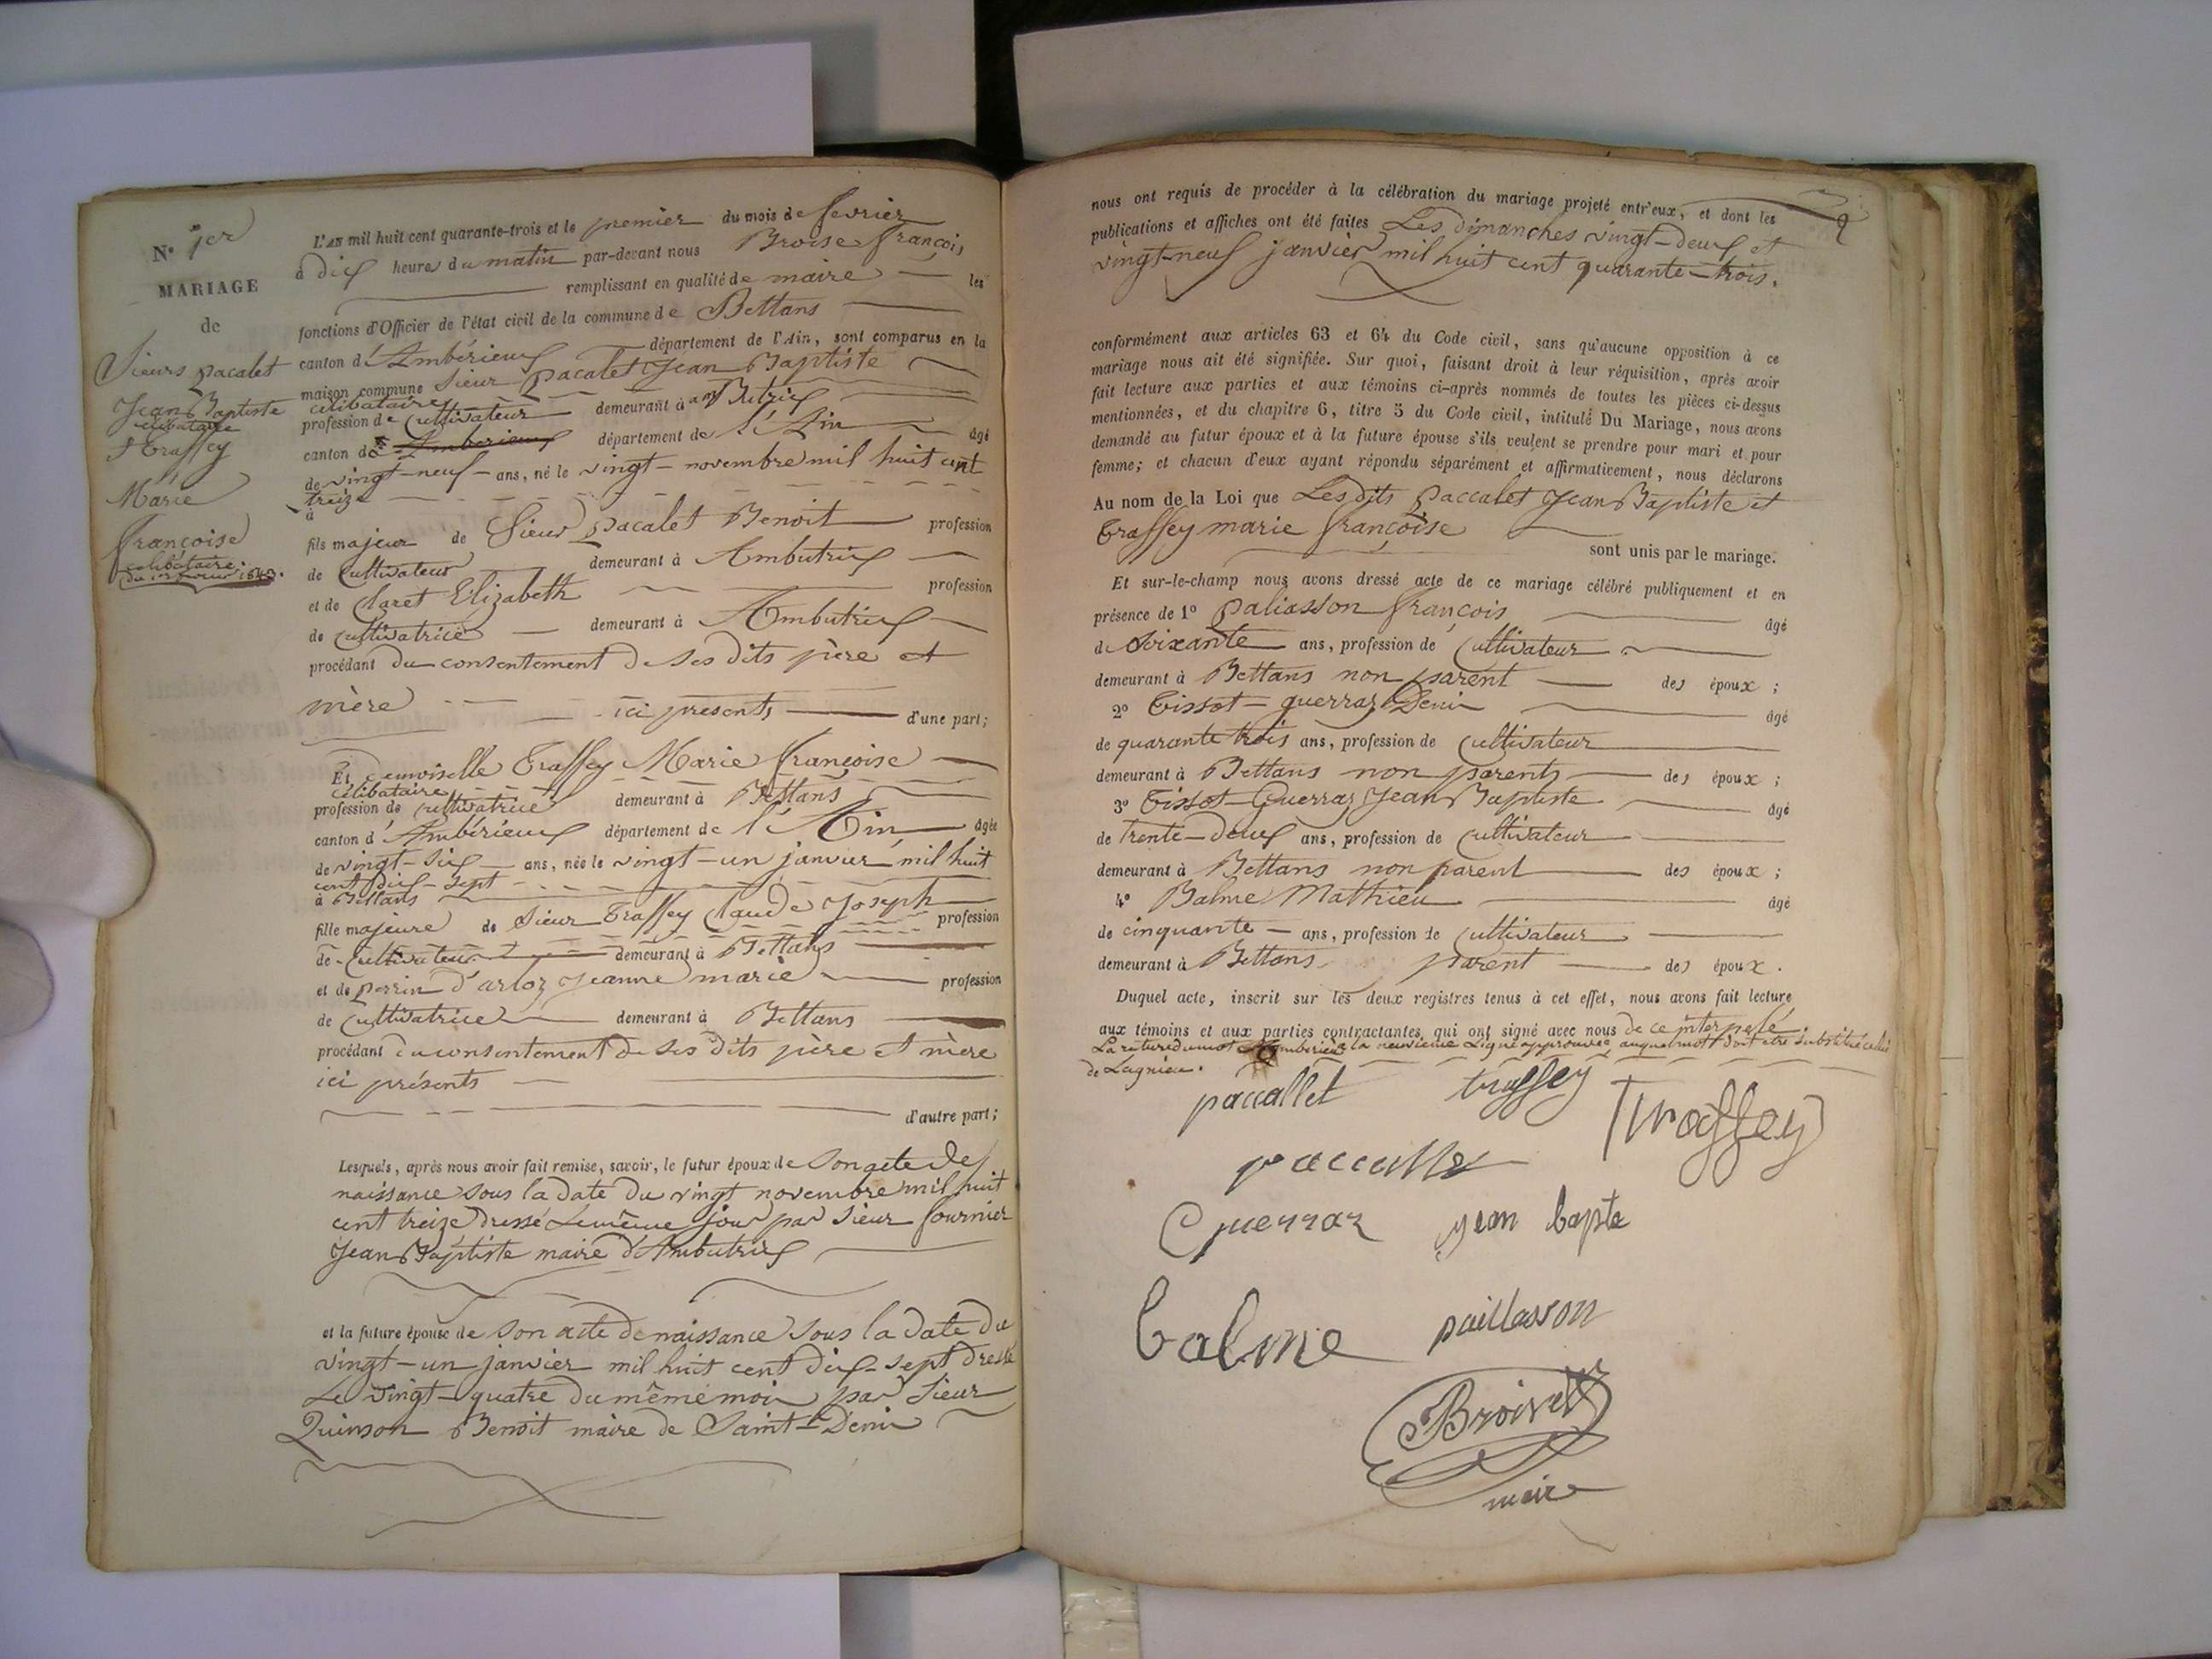 N° 1er
MARIAGE
de
Sieurs pacalet
Jean Baptiste
célibataire
& Traffey
Marie
Françoise
célibataire.
du 1er février 1843.
L'AN mil huit cent quarante-trois et le premier du mois de fevrier
à dix heure du matin par-devant nous Broise françois
remplissant en qualité de maire les
fonctions d'Officier de l'état civil de la commune de Bettans
canton d'Ambérieux département de l'Ain, sont comparus en la
maison commune Sieur pacalet Jean Baptiste
célibataire
profession de Cultivateur demeurant à amButrix
canton de Amberieux département de l'Ain âgé
de vingt-neuf ans, né le vingt-novembre mil huit cent
treize
à
fils majeur de Sieur pacalet Benoit profession
de Cultivateur demeurant à Ambutrix
et de Claret Elizabeth profession
de Cultivatrice demeurant à Ambutrix
procédant du consentement de ses dits père et
mère ici présents d'une part;
Et demoiselle Traffey Marie françoise
célibataire
profession de cultivatrice demeurant à Bettans
canton d'Ambérieux département de l'Ain âgée
de vingt-six ans, née le vingt-un janvier mil huit
cent dix-sept
à Bettans
fille majeure de Sieur Traffey Claude Joseph profession
de Cultivateur demeurant à Bettans
et de perrin d'arloz Jeanne marie profession
de Cultivatrice demeurant à Bettans
procédant du consentement de ses dits père et mère
ici présents
d'autre part;
Lesquels, après nous avoir fait remise, savoir, le futur époux de Son acte de
naissance sous la date du vingt novembre mil huit
cent treize dressé le même jour par Sieur fournier
Jean Baptiste maire d'Ambutrix
et la future épouse de Son acte de naissance sous la date du
vingt-un janvier mil huit cent dix-sept dressé
Le vingt-quatre du même mois par Sieur
Quinson Benoit maire de Saint-Denis
nous ont requis de procéder à la célébration du mariage projeté entr'eux, et dont les
publications et affiches ont été faites Les dimanches vingt-deux et
vingt-neuf janvier mil huit cent quarante-trois.
conformément aux articles 63 et 64 du Code civil, sans qu'aucune opposition à ce
mariage nous ait été signifiée. Sur quoi, faisant droit à leur réquisition, après avoir
fait lecture aux parties et aux témoins ci-après nommés de toutes les pièces ci-dessus
mentionnées, et du chapitre 6, titre 5 du Code civil, intitulé Du Mariage, nous avons
demandé au futur époux et à la future épouse s'ils veulent se prendre pour mari et pour
femme; et chacun d'eux ayant répondu séparément et affirmativement, nous déclarons
Au nom de la Loi que Lesdits paccalet Jean Baptiste et
Traffey marie françoise
sont unis par le mariage.
Et sur-le-champ nous avons dressé acte de ce mariage célébré publiquement et en
présence de 1° paliasson françois âgé
de soixante ans, profession de Cultivateur
demeurant à Bettans non parent des époux;
2° Tissot-guerraz Denis âgé
de quarante trois ans, profession de Cultivateur
demeurant à Bettans non parents des époux;
3° Tissot-Guerraz Jean Baptiste âgé
de trente-deux ans, profession de Cultivateur
demeurant à Bettans non parent des époux;
4° Balme Mathieu âgé
de cinquante ans, profession de Cultivateur
demeurant à Bettans parent des époux.
Duquel acte, inscrit sur les deux registres tenus à cet effet, nous avons fait lecture
aux témoins et aux parties contractantes qui ont signé avec nous de ce interpelé
La rature du mot Amberieux à la neuvième Ligne approuvée auquel mot doit être substitué celui
de Lagnieu.
paccallet traffey
Traffey
paccalle
Guerraz jean bapte
balme paillasson
Broise
maire